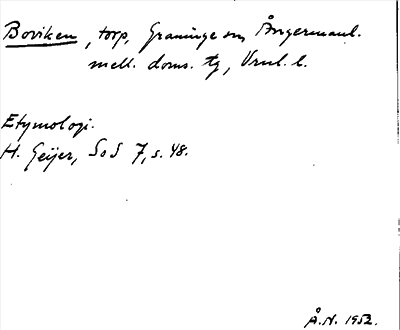 Boviken, torp, Graninge sn, Ångermanl.
mell. doms. tg, Vrnl. l.
Etymologi.
H. Geijer, SoS 7, s. 48.
Å.N. 1952.